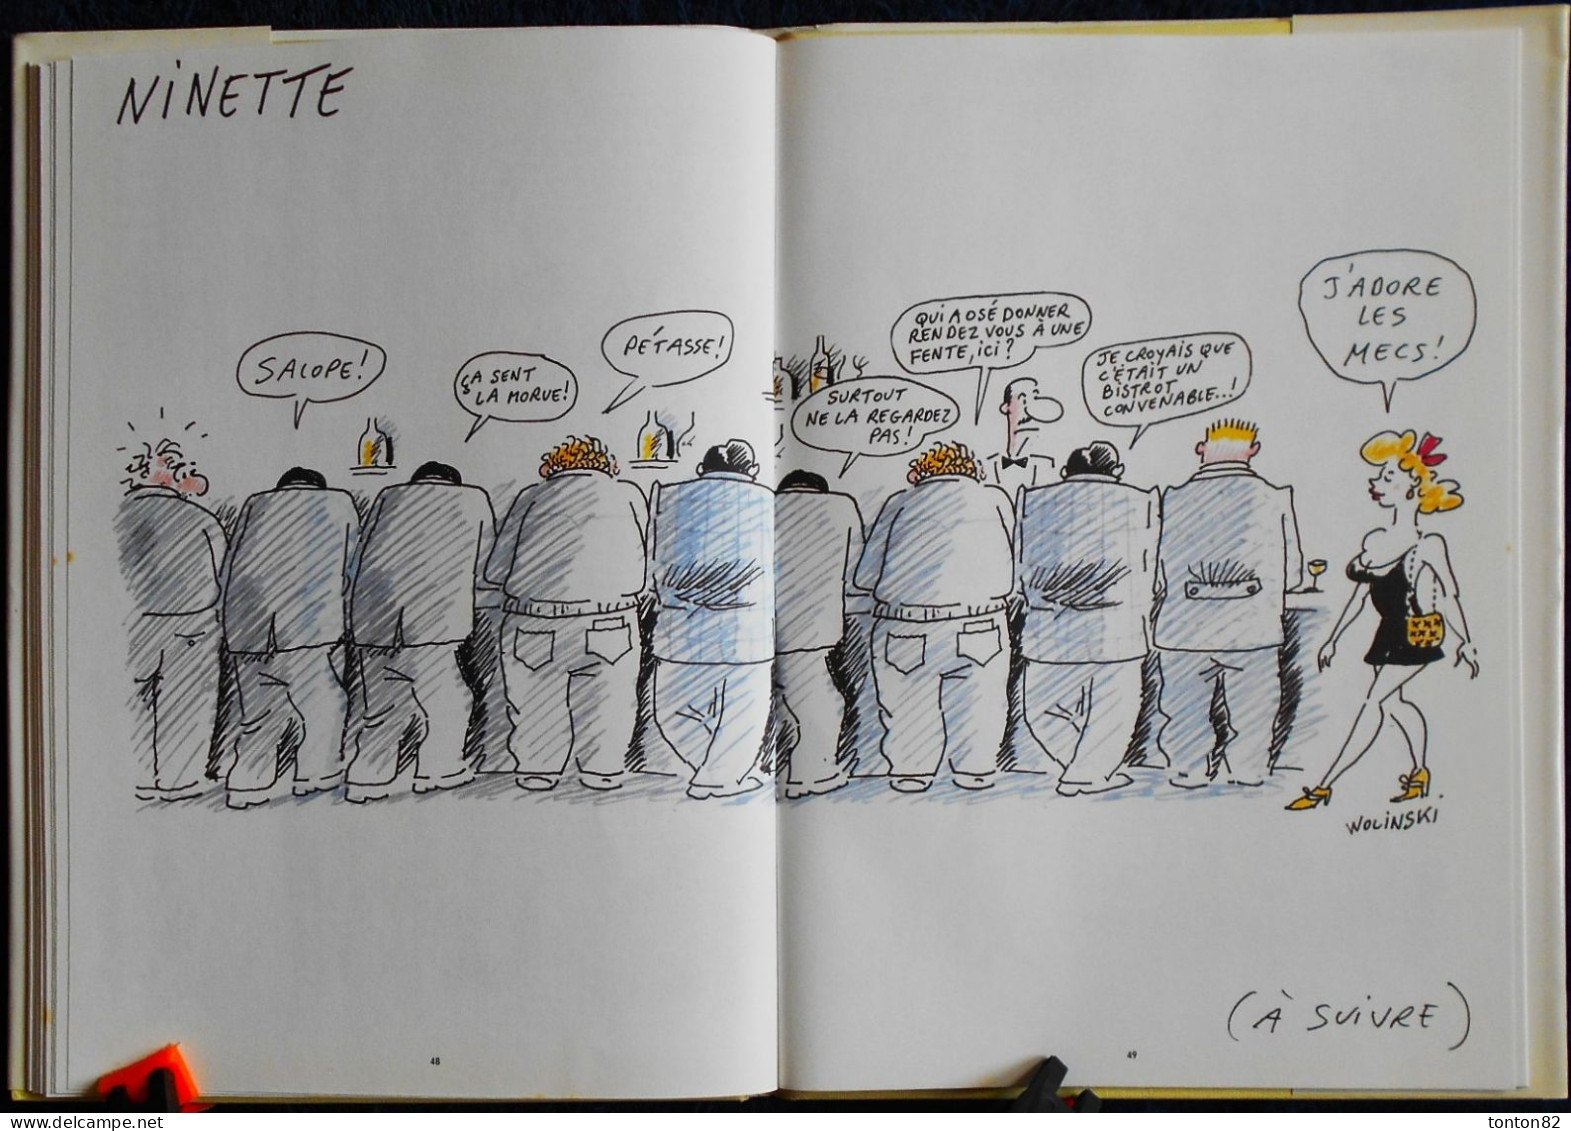 NINETTE
SALOPE!
ÇA SENT
LA MORUE!
PÉTASSE!
SURTOUT
NE LA REGARDEZ
PAS!
QUI A OSÉ DONNER
RENDEZ VOUS À UNE
FENTE, ICI?
JE CROYAIS QUE
C'ÉTAIT UN
BISTROT
CONVENABLE...!
J'ADORE
LES
MECS!
WOLINSKI
(À SUIVRE)
48
49
www.delcampe.net
tonton82